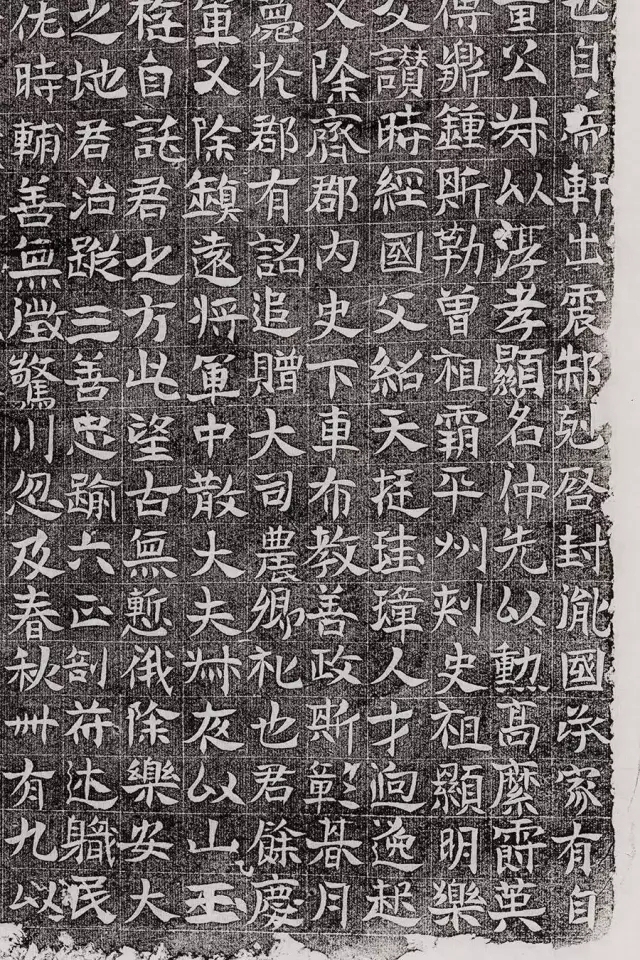 也自帝軒出震剋啓封胤國承家有自
公叔以淳孝顯名仲先以勲高縻爵英
傳鼎鍾斯勒曾祖霸平州刾史祖顯明樂
文讃時經國父紹天挺珪璋人才逈逸起
又除齊郡内史下車布教善政斯彰朞月
薨於郡有詔追贈大司農卿礼也君餘慶
軍又除鎮遠將軍中散大夫叔夜以山玉
自託君之方此望古無慙俄除樂安大
之地君治蹤三善忠踰六正剖苻述軄民
佐時輔善無徵驚川忽及春秋卌有九以